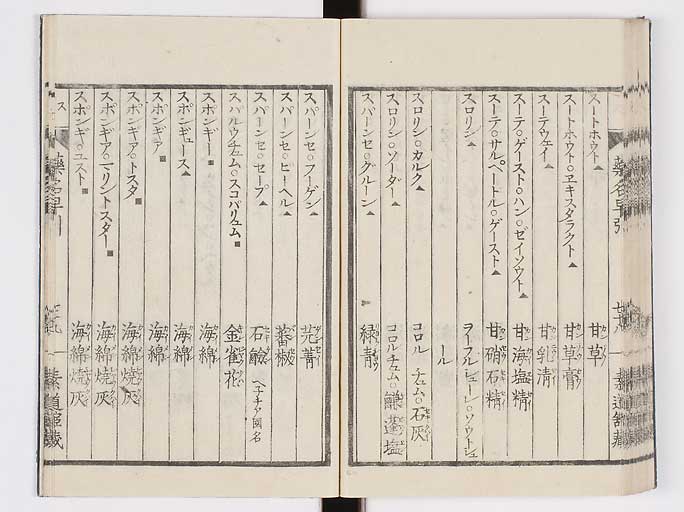 スートホウト▲ 甘草
スートホウト○エキスタラクト▲ 甘草膏
スーテウェイ▲ 甘乳清
スーテ○ゲースト○ハン○ゼイソウト▲ 甘海塩精
スーテ○サルペートル○ゲースト▲ 甘硝石精
スロリン▲ ヲーフルシューレ○ソウトシュ
ール
スロリン○カルク▲ コロルチュム○石灰
スロリン○ソーダー▲ コロルチュム○鹻蓬塩
スパーンセ○グルーン▲ 緑青
スパーンセ○フーゲン▲ 芫菁
スパーンセ○ピーヘル▲ 蕃椒
スパーンセ○セープ▲ 石鹼
スパルウチュム○スコパリュム■ 金雀花
スポンギー■ 海綿
スポンギュース▲ 海綿
スポンギア■ 海綿
スポンギア○トスタ■ 海綿焼灰
スポンギア○マリントスター■ 海綿焼灰
スポンギ○ユスト■ 海綿焼灰
ス
藥名早引